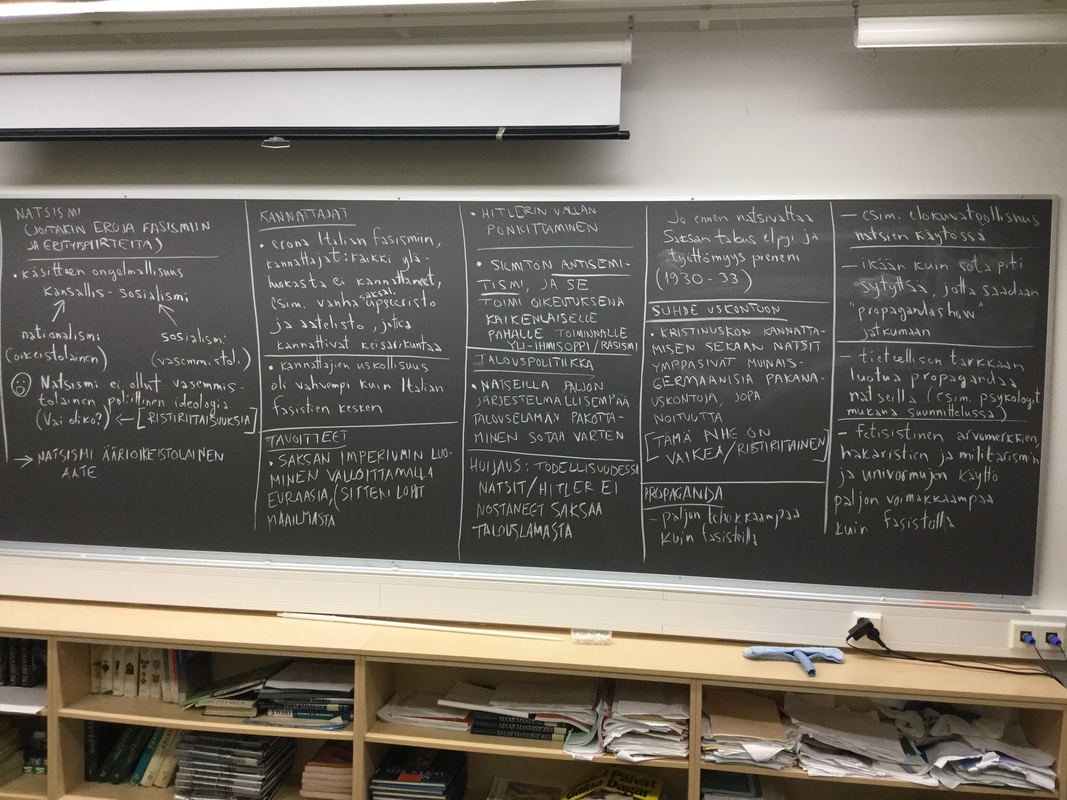 NATSISMI
(JOITAKIN EROJA FASISMIIN
JA ERITYISPIIRTEITÄ)
• käsitteen ongelmallisuus
kansallis-sosialismi
nationalismi
(oikeistolainen)
sosialismi
(vasemm.stol.)
Natsismi ei ollut vasemmis-
tolainen poliittinen ideologia
(Vai oliko?) ← [RISTIRIITAISUUKSIA]
→ NATSISMI ÄÄRIOIKEISTOLAINEN
AATE
KANNATTAJAT
• erona Italian fasismiin,
kannattajat: kaikki ylä-
luokasta ei kannattaneet,
esim. vanha saksal. upseeristo
ja aatelisto, jotka
kannattivat keisarikuntaa
• kannattajien uskollisuus
oli vahvempi kuin Italian
fasistien kesken
TAVOITTEET
• SAKSAN IMPERIUMIN LUO-
MINEN VALLOITTAMALLA
EURAASIA, (SITTEN LOPUT
MAAILMASTA
• HITLERIN VALLAN
PÖNKITTÄMINEN
• SILMITÖN ANTISEMI-
TISMI, JA SE
TOIMI OIKEUTUKSENA
KAIKENLAISELLE
PAHALLE TOIMINNALLE
YLI-IHMISOPPI/RASISMI
TALOUSPOLITIIKKA
• NATSEILLA PALJON
JÄRJESTELMÄLLISEMPÄÄ
TALOUSELÄMÄN PAKOTTA-
MINEN SOTAA VARTEN
HUIJAUS: TODELLISUUDESSA
NATSIT/HITLER EI
NOSTANEET SAKSAA
TALOUSLAMASTA
Jo ennen natsivaltaa
Saksan talous elpyi ja
työttömyys pieneni
(1930-33)
SUHDE USKONTOON
• KRISTINUSKON KANNATTA-
MISEN SEKAAN NATSIT
YMPPÄSIVÄT MUINAIS-
GERMAANISIA PAKANA-
USKONTOJA, JOPA
NOITUUTTA
[TÄMÄ AIHE ON
VAIKEA/RISTIRIITAINEN]
PROPAGANDA
- paljon tehokkaampaa
kuin fasisteilla
- esim. elokuvateollisuus
natsien käytössä
- ikään kuin sota piti
sytyttää, jotta saadaan
"propagandashow"
jatkumaan
- tieteellisen tarkkaan
luotua propagandaa
natseilla (esim. psykologit
mukana suunnittelussa)
- fetisistinen arvomerkkien,
hakaristien ja militarismin
ja univormujen käyttö
paljon voimakkaampaa
kuin fasisteilla